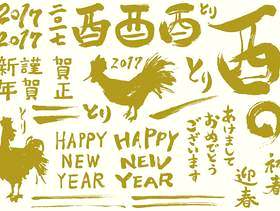 2017
2017
二〇一七
酉
酉
酉
とり
酉
謹賀
新年
賀正
とり
2017
とり
HAPPY
NEW
YEAR
HAPPY
NEW
YEAR
あけまして
おめでとう
ございます
迎春